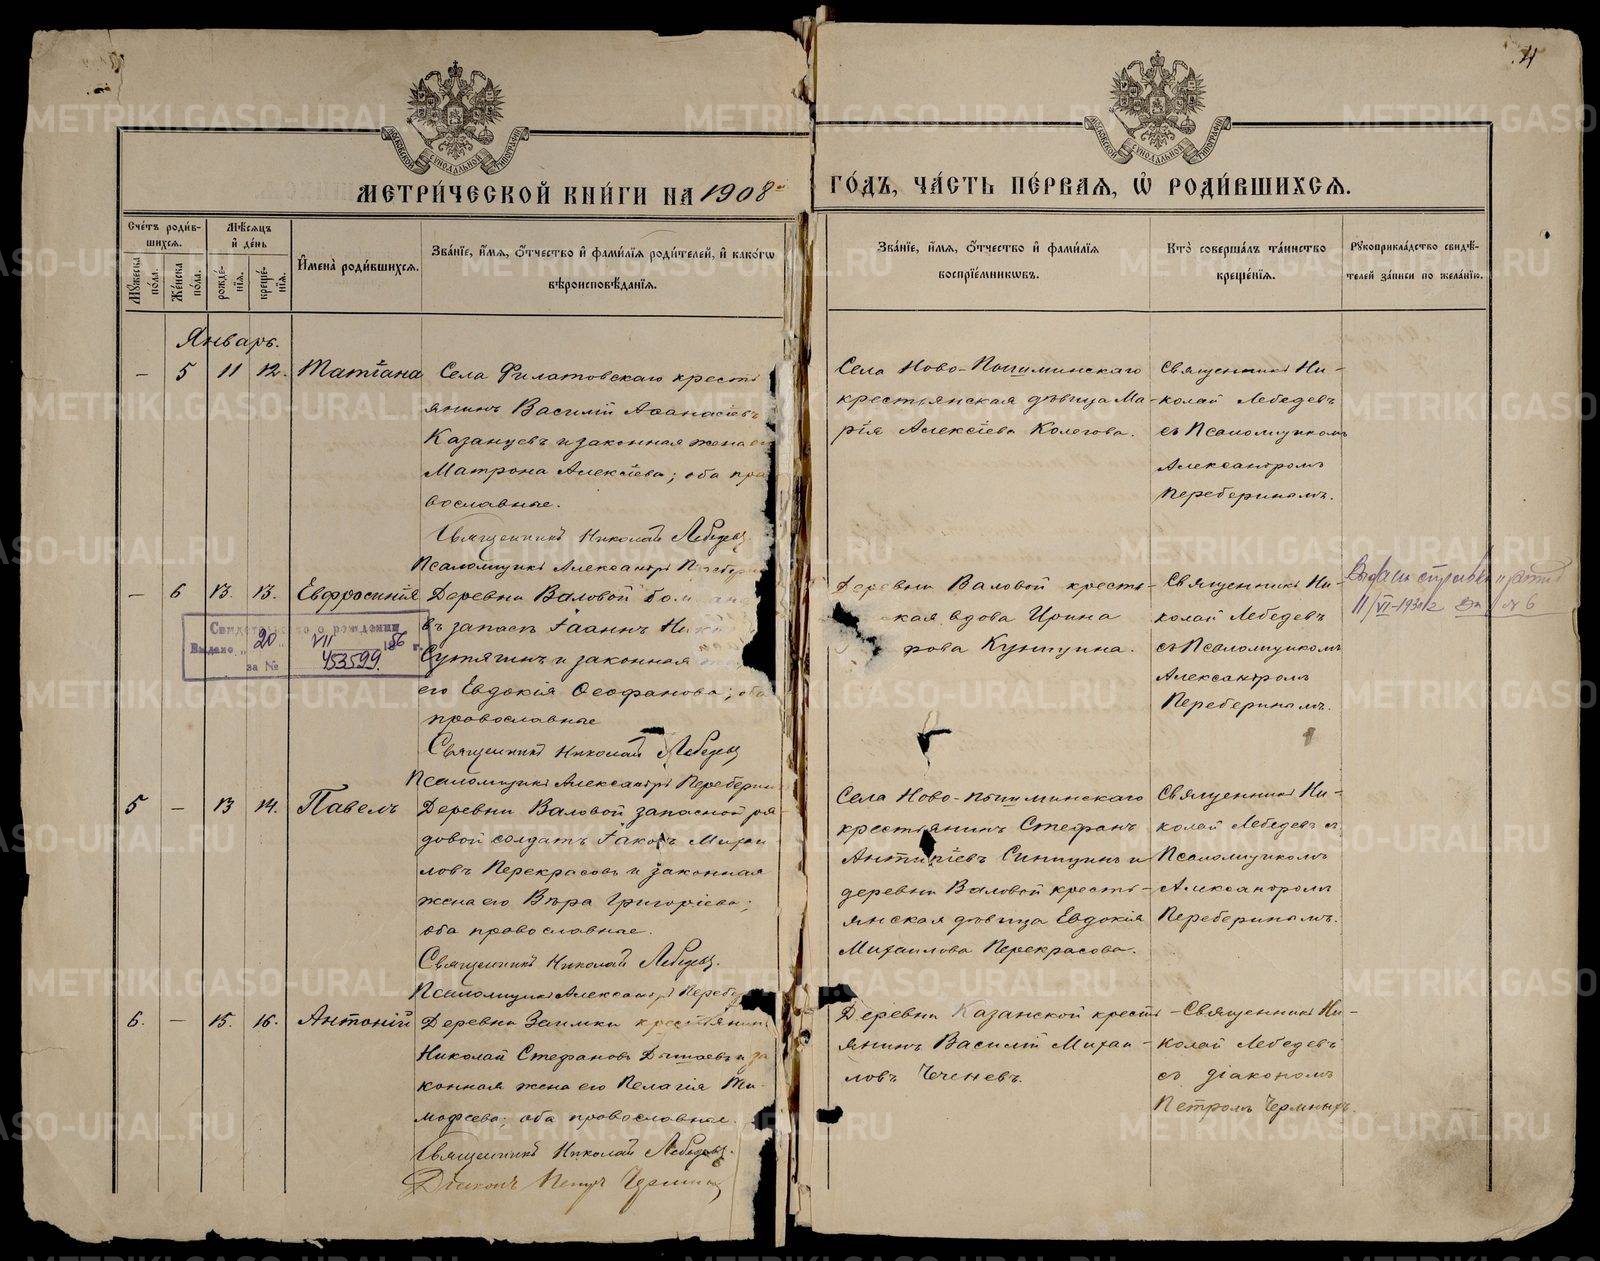 4
МОСКОВСКОЙ СѴНОДАЛЬНОЙ ТИПОГРАФІИ
МОСКОВСКОЙ СѴНОДАЛЬНОЙ ТИПОГРАФІИ
МЕТРИ́ЧЕСКОЙ КНИ́ГИ НА 1908
ГО́ДЪ, ЧА́СТЬ ПЕ́РВАЯ, Ѡ РОДИ́ВШИХСЯ.
Сче́тъ роди́вшихся.
Му́жеска по́ла.
Же́нска по́ла.
Мѣ́сяцъ и де́нь
рожде́нїя.
креще́нїя.
Имена̀ роди́вшихся.
Зва́нїе, и́мя, ѻ́тчество и фами́лїя роди́телей, и како́гѡ
вѣроисповѣ́данїя.
Зва́нїе, и́мя, ѻ́тчество и фами́лїя
воспрїе́мниковъ.
Кто̀ соверша́лъ та́инство
креще́нїя.
Рукоприкла́дство свидѣ́-
телей за́писи по жела́нїю.
Январь.
– 5 11 12. Татіана
Села Филатовскаго кресть
янинъ Василій Аѳанасіевъ
Казанцевъ и законная жена
Матрона Алексіева; оба пра
вославные.
Священникъ Николай Лебедевъ
Псаломщикъ Александръ
Села Ново-Пышминскаго
крестьянская дѣвица Ма-
рія Алексіева Колегова.
Священникъ Ни-
колай Лебедевъ
съ Псаломщикомъ
Александромъ
Переберинымъ.
– 6 13. 13. Евфросинія
Деревни Валовой
въ запасѣ Іоаннъ
Сутягинъ и законная
его Евдокія Ѳеофанова; оба
православные
Священникъ Николай Лебедевъ
Псаломщикъ Александръ Переберин
Свидетельство о рождении
Выдано „20“ VII 1956 г.
за № 453599.
Деревни Валовой кресть-
кая вдова Ирина
рова Кунщина.
Священникъ Ни-
колай Лебедевъ
съ Псаломщикомъ
Александромъ
Переберинымъ.
Выдана
11/VI-19 За № 6
5 – 13 14. Павелъ
Деревни Валовой запасной ря
довой солдатъ Іаковъ Михаи
ловъ Перекрасовъ и законная
жена его Вѣра Григоріева;
оба православные.
Священникъ Николай Лебедевъ.
Псаломщикъ Александръ Перебе
Села Ново-Пышминскаго
крестьянинъ Стефанъ
Антипіевъ Синицинъ и
деревни Валовой кресть-
янская дѣвица Евдокія
Михаилова Перекрасова.
Священникъ Ни-
колай Лебедевъ съ
Псаломщикомъ
Александромъ
Переберинымъ.
6. – 15. 16. Антоній
Деревни Заимки крестьянинъ
Николай Стефановъ и за
конная жена его Пелагія Ти-
моѳеева; оба православные.
Священникъ Николай Лебедевъ.
Діаконъ Петръ Черныхъ
Деревни Казанской кресть-
янинъ Василій Михаи-
ловъ Чеченевъ.
Священникъ Ни-
колай Лебедевъ
съ діакономъ
Петромъ Черныхъ.
METRIKI.GASO-URAL.RU